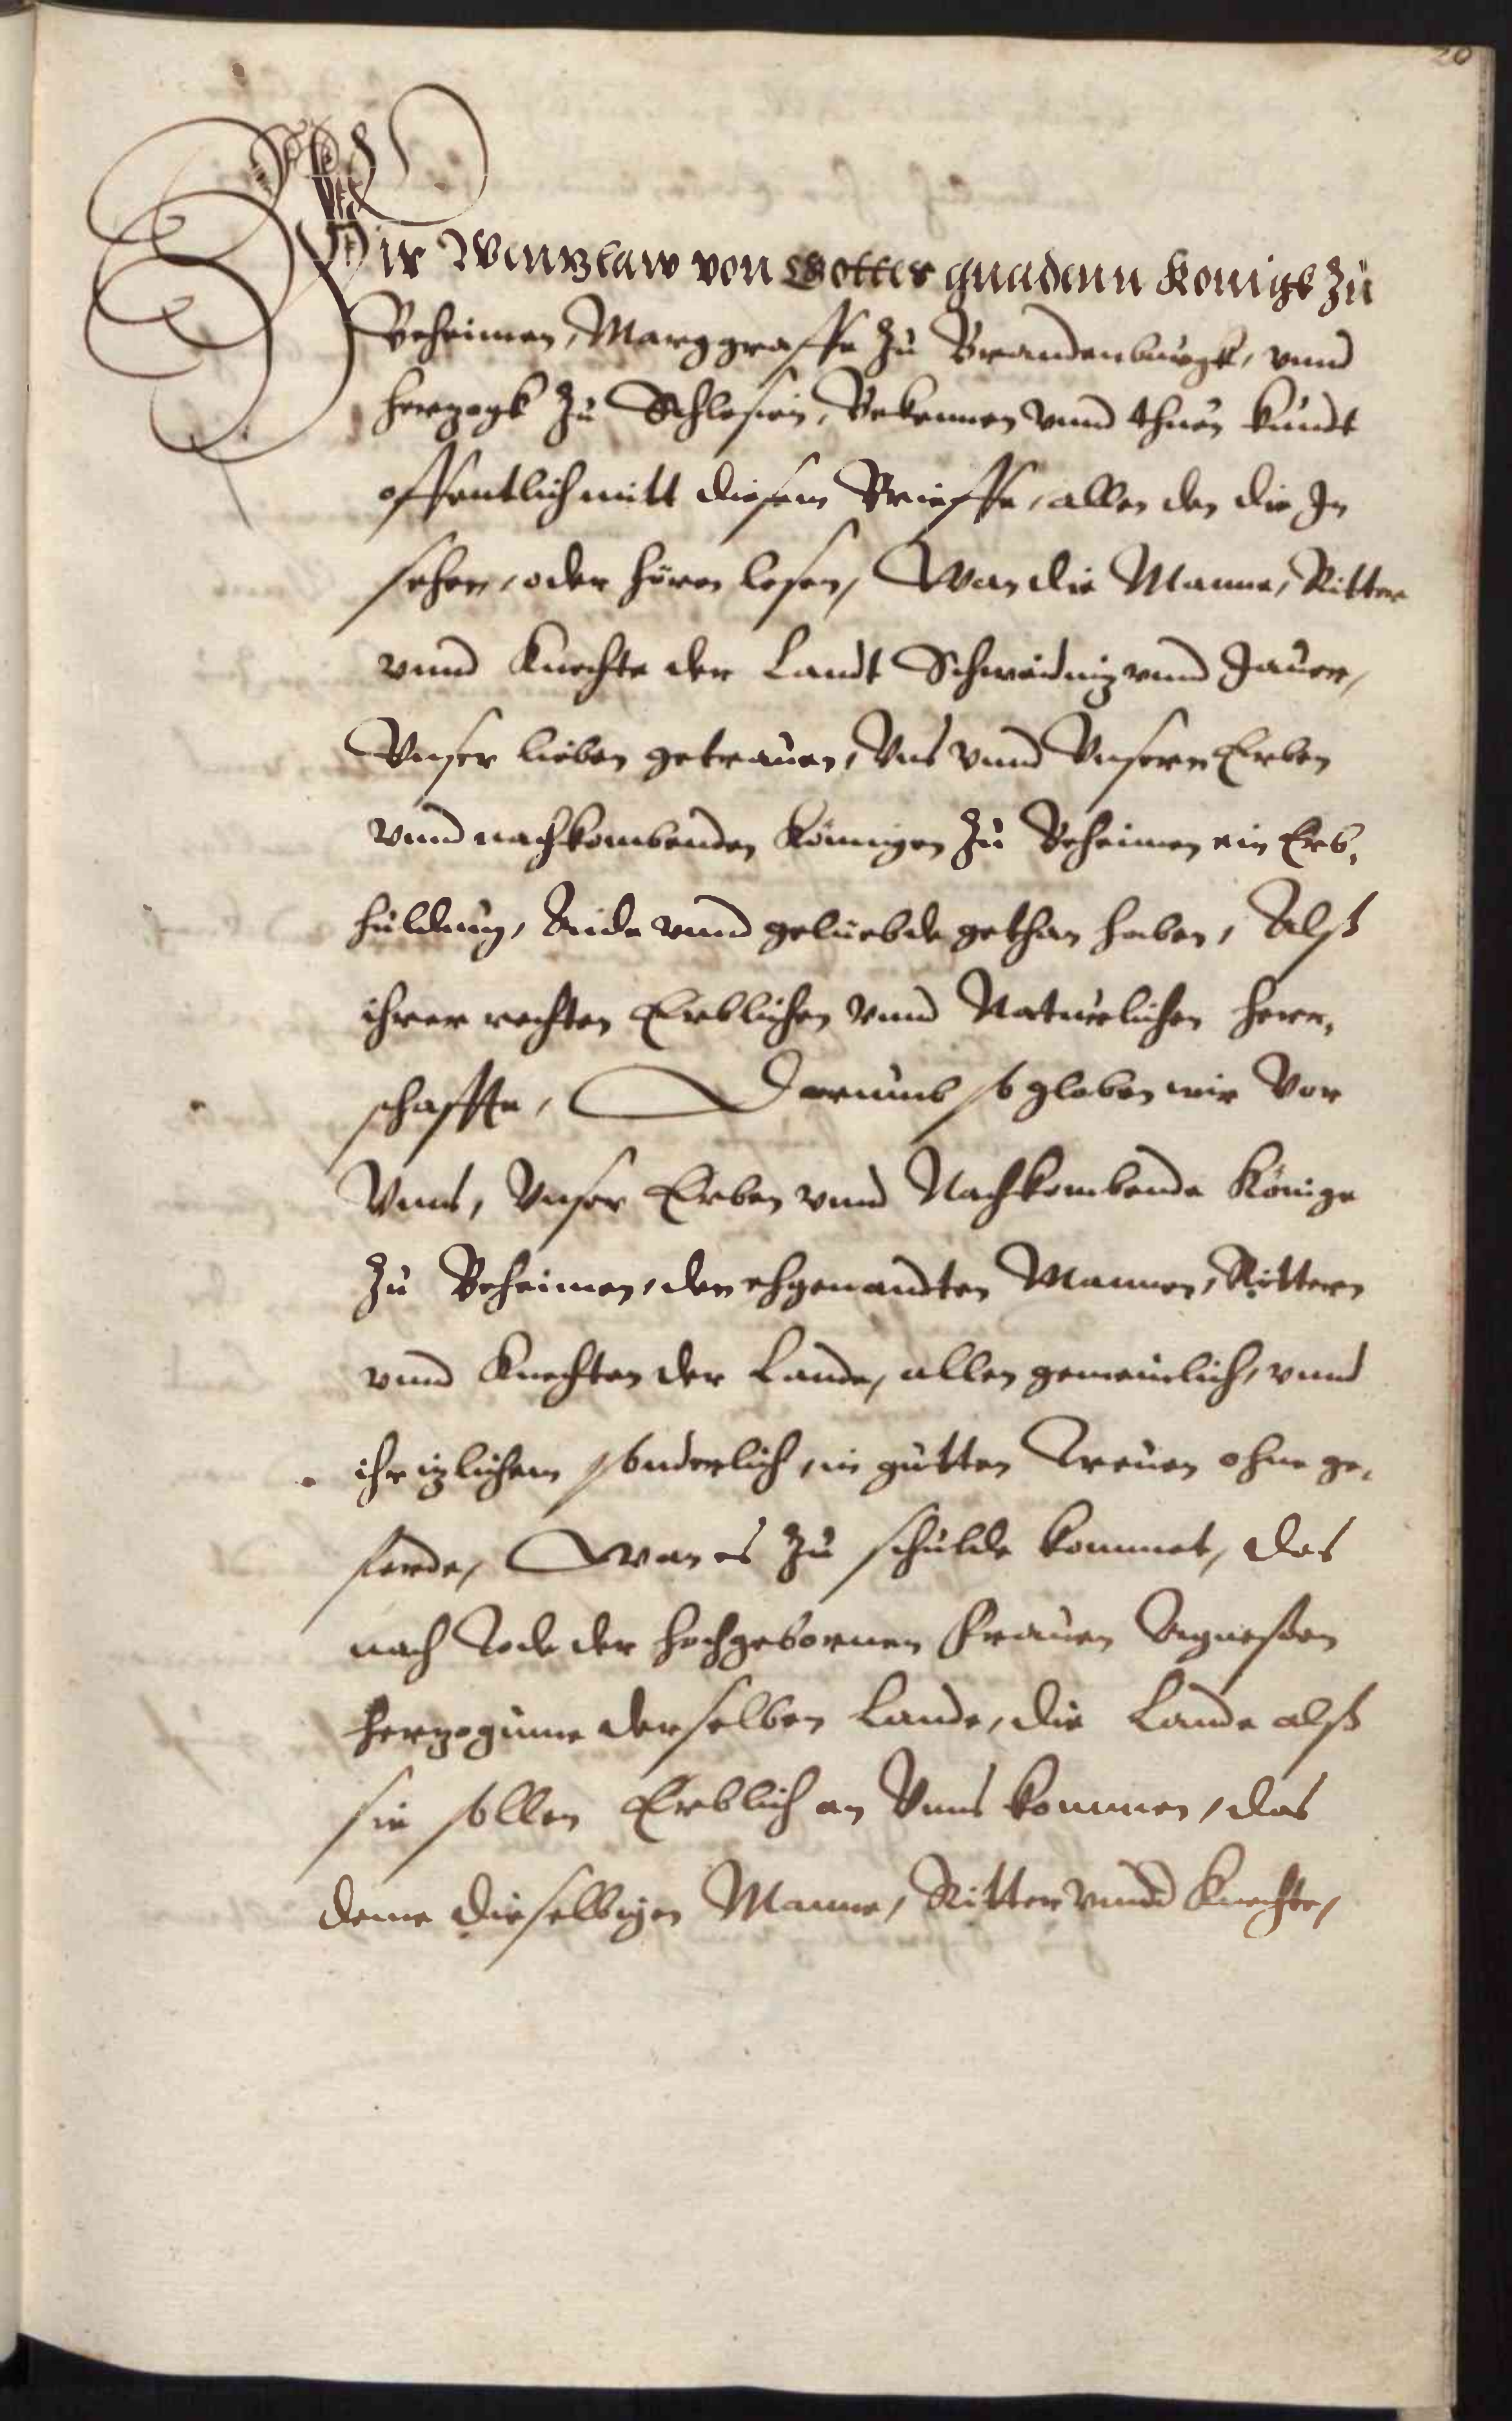 20
Wir Wenzlaw von Gottes gnadenn Konigk zu
Beheimen, Marggraffe zu Brandenburgk, vnnd
Herzogk zu Schlesien, Bekennen vnnd thuen kundt
offentlich mitt diesem Brieffe, allen den die In
sehen, oder hören lesen, Wan die Manne, Ritter
vnnd Knechte der Landt Schweidniz vnnd Jauer,
Vnser lieben getrauen, Vns vnnd Vnsern Erben
vnnd nachkombenden Königen zu Beheimen ein Erb,
huldung, Aide vnnd geluebde gethan haben, Alß
ihrer rechten Erblichen vnnd Naturlichen Herr,
schafften, Darumb so globen wir Vor
Vnns, Vnser Erben vnnd Nachkombende Könige
zu Beheimen, den ehgenandten Mannen, Rittern
vnnd Knechten der Lande, allen gemeinlich, vnnd
ihr izlichem sonderlich, in gutten Treuen ohne ge,
ferde, Wan es zu schulde kommet, das
nach Tode der hochgebornen Frauen Agneßen
Herzoginne derselben Lande, die Lande alß
sie sollen Erblich an Vnns kommen, das
denne dieselbigen Manne, Ritter vnnd Knechte,